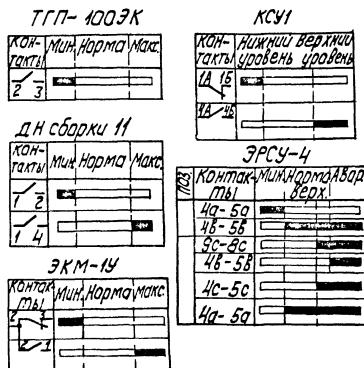 ТГП-100ЭК
КОН-
ТАКТЫ
Мин.
Норма
Макс.
2 3
ДН сборки 11
КОН-
ТАКТЫ
Мин
Норма
Макс.
1 2
1 4
ЭКМ-1У
КОНТАК-
ТЫ
Мин.
Норма
Макс.
2 3
2 1
КСУ1
КОН-
ТАКТЫ
Нижний уровень
Верхний уровень
1А 1Б
4А 4Б
ЭРСУ-4
ПОЗ
Контак-
ты
Мин.
Норма
верх.
Авар
4а-5а
4в-5в
9с-8с
4в-5в
4с-5с
4а-5а